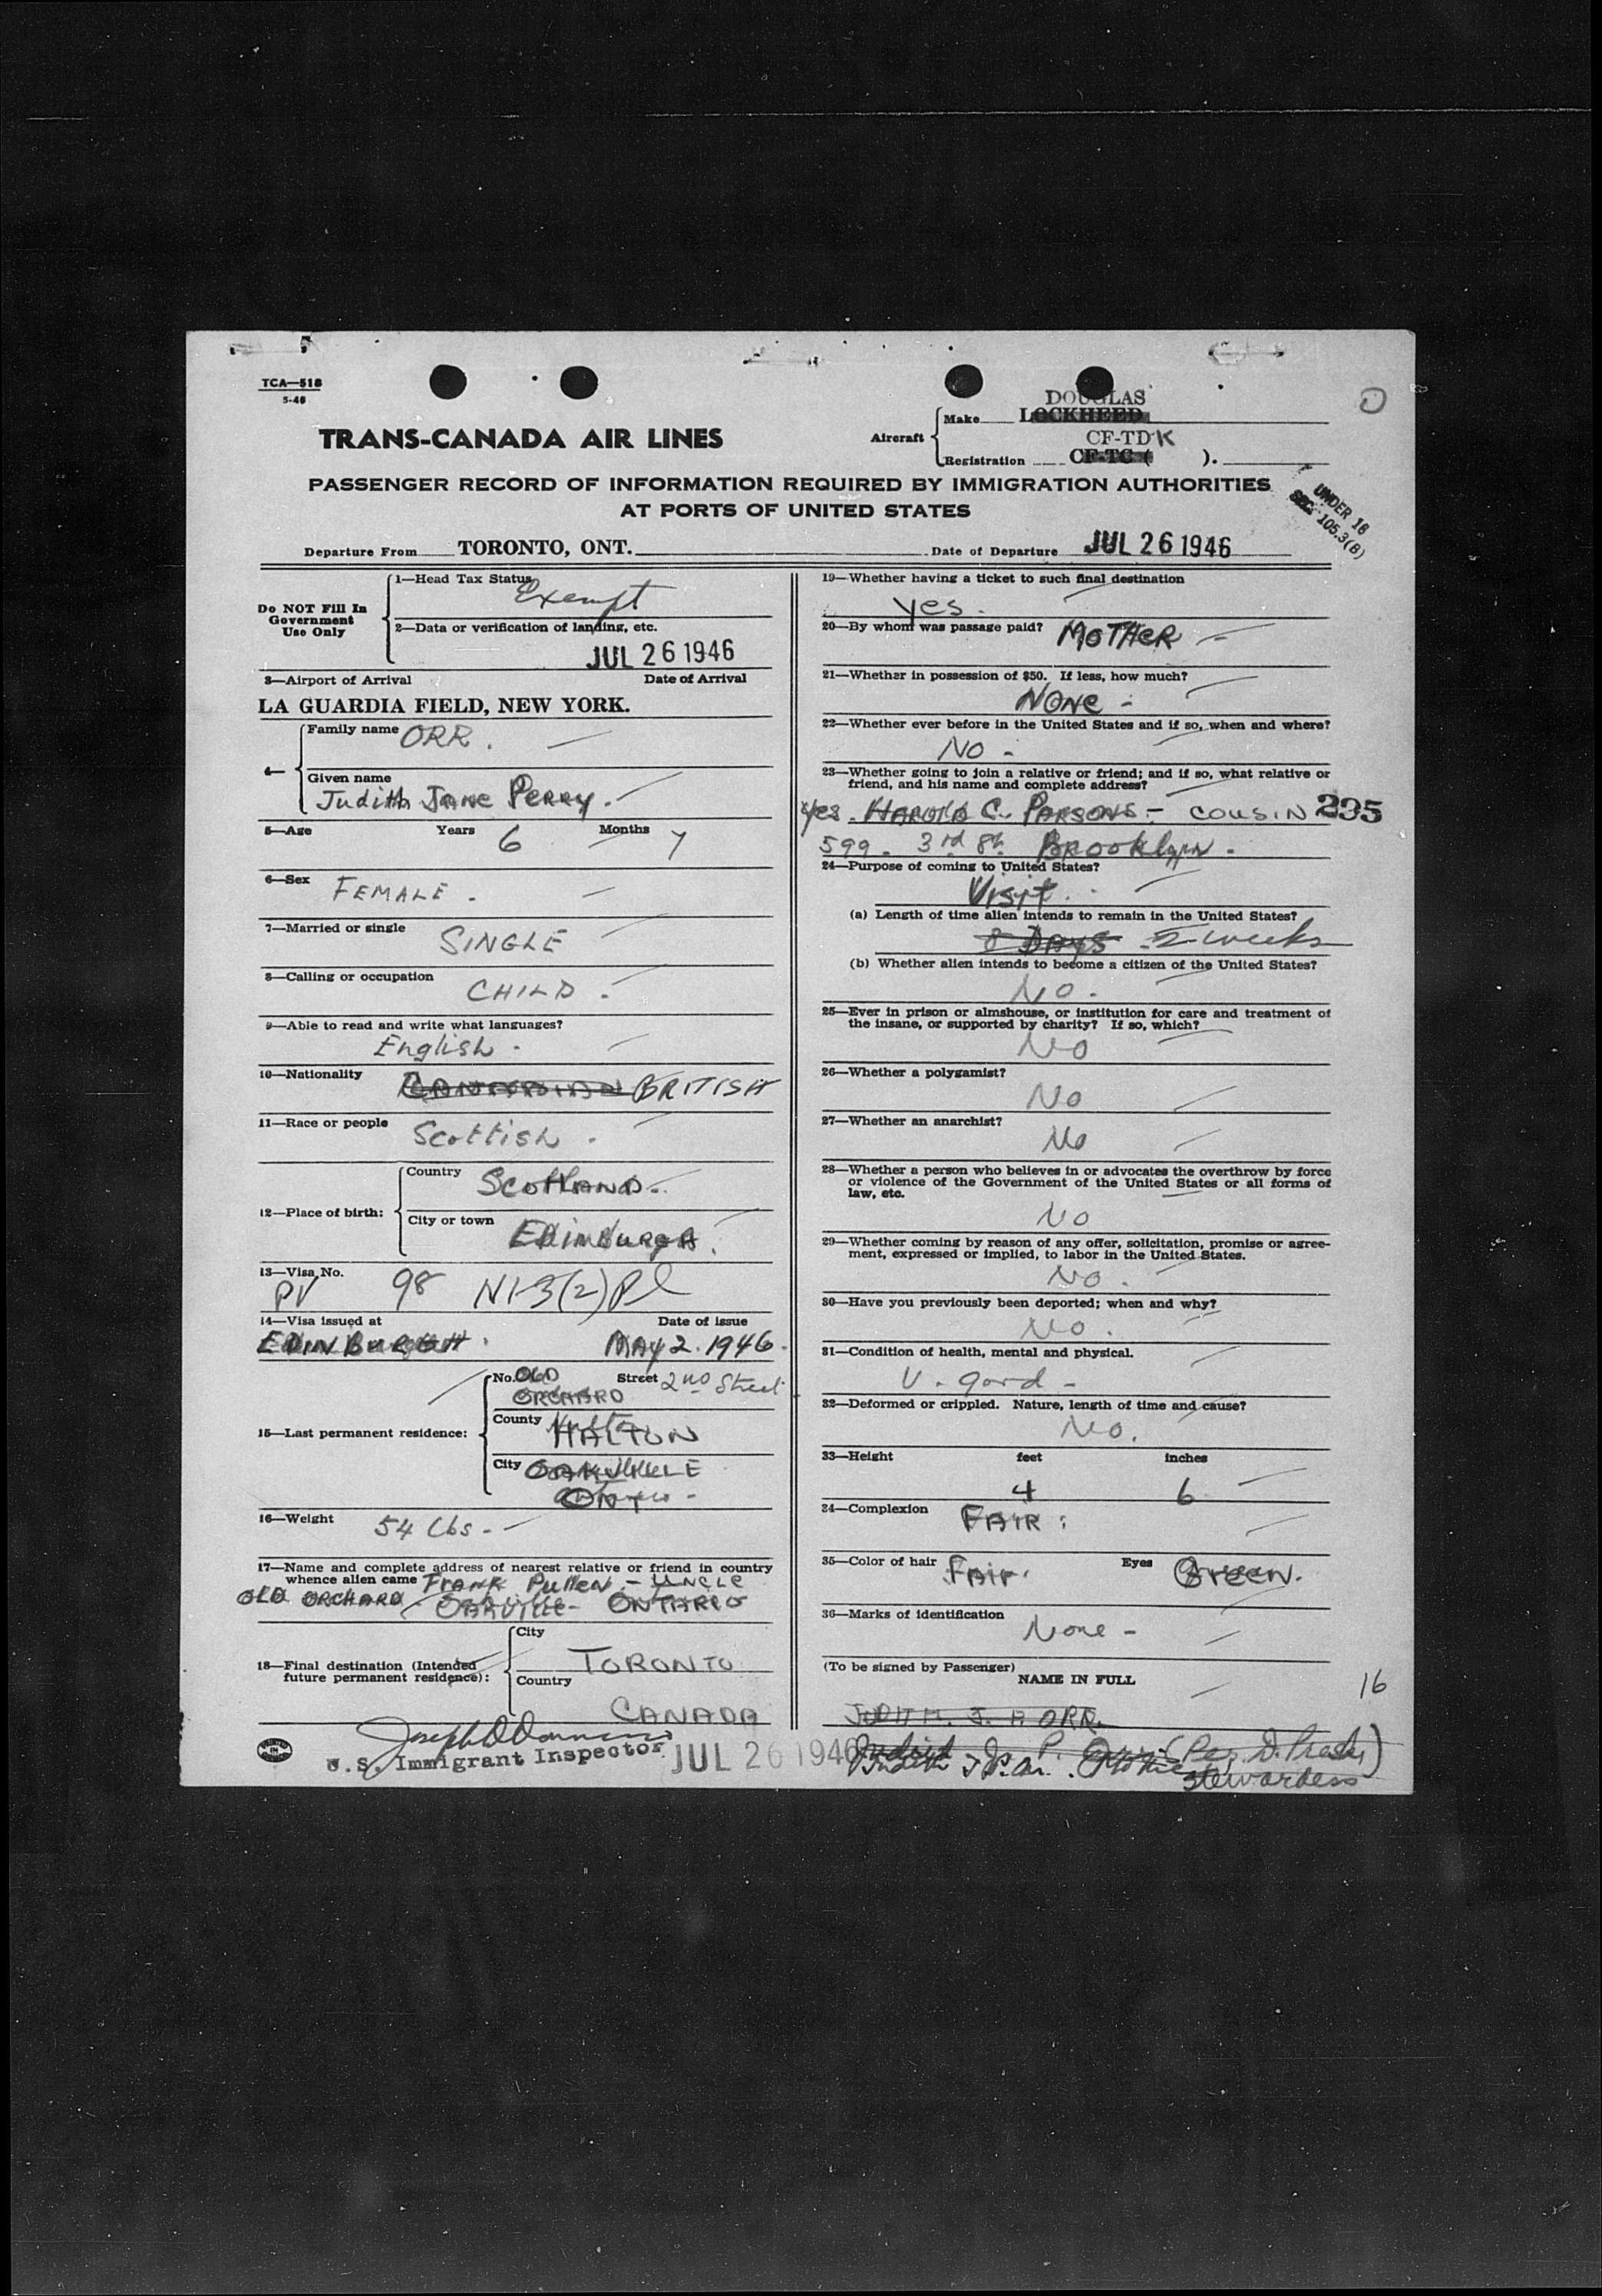 TCA—518
5-46
DOUGLAS
Make LOCKHEED
TRANS-CANADA AIR LINES
Aircraft
CF-TDK
Registration CF-TC ( ).
PASSENGER RECORD OF INFORMATION REQUIRED BY IMMIGRATION AUTHORITIES
AT PORTS OF UNITED STATES
UNDER 16
SEC. 105.3(B)
Departure From TORONTO, ONT. Date of Departure JUL 26 1946
Do NOT Fill In
Government
Use Only
1—Head Tax Status
Exempt
2—Data or verification of landing, etc.
JUL 26 1946
3—Airport of Arrival Date of Arrival
LA GUARDIA FIELD, NEW YORK.
4—
Family name ORR.
Given name
Judith Jane Perry.
5—Age Years 6 Months 7
6—Sex FEMALE.
7—Married or single SINGLE
8—Calling or occupation CHILD.
9—Able to read and write what languages?
English.
10—Nationality BRITISH
11—Race or people Scottish.
12—Place of birth:
Country Scotland.
City or town Edinburgh.
13—Visa No.
PV 98 NI-3(2)
14—Visa issued at Date of issue
EDINBURGH. MAY 2. 1946.
15—Last permanent residence:
No. OLD ORCHARD Street 2nd Street
County HALTON
City OAKVILLE
ONT
16—Weight 54 lbs.
17—Name and complete address of nearest relative or friend in country
whence alien came FRANK Pullen - UNCLE
OLD ORCHARD OAKVILLE - ONTARIO
18—Final destination (Intended
future permanent residence):
City
TORONTO
Country
CANADA
U.S. Immigrant Inspector JUL 26 1946
19—Whether having a ticket to such final destination
yes.
20—By whom was passage paid? MOTHER
21—Whether in possession of $50. If less, how much?
NONE -
22—Whether ever before in the United States and if so, when and where?
NO -
23—Whether going to join a relative or friend; and if so, what relative or
friend, and his name and complete address?
yes. HAROLD C. PARSONS - COUSIN 235
599. 3rd St. Brooklyn.
24—Purpose of coming to United States?
Visit.
(a) Length of time alien intends to remain in the United States?
8 DAYS 2 weeks
(b) Whether alien intends to become a citizen of the United States?
No.
25—Ever in prison or almshouse, or institution for care and treatment of
the insane, or supported by charity? If so, which?
No
26—Whether a polygamist?
No
27—Whether an anarchist?
No
28—Whether a person who believes in or advocates the overthrow by force
or violence of the Government of the United States or all forms of
law, etc.
No
29—Whether coming by reason of any offer, solicitation, promise or agree-
ment, expressed or implied, to labor in the United States.
No.
30—Have you previously been deported; when and why?
No.
31—Condition of health, mental and physical.
V. good -
32—Deformed or crippled. Nature, length of time and cause?
No.
33—Height feet inches
4 6
34—Complexion FAIR
35—Color of hair Fair. Eyes Green.
36—Marks of identification
None -
(To be signed by Passenger)
NAME IN FULL
16
JUDITH. J. P. ORR.
Judith J. P. (Per. D.
Stewardess